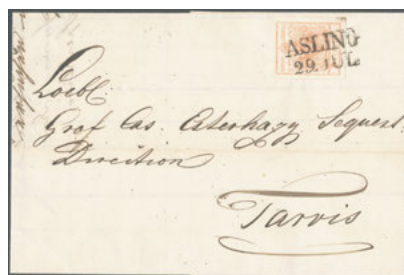 ASLING
29. JUL
Loebl.
Graf Cas. Esterhazy Sequest.
Direction
Tarvis